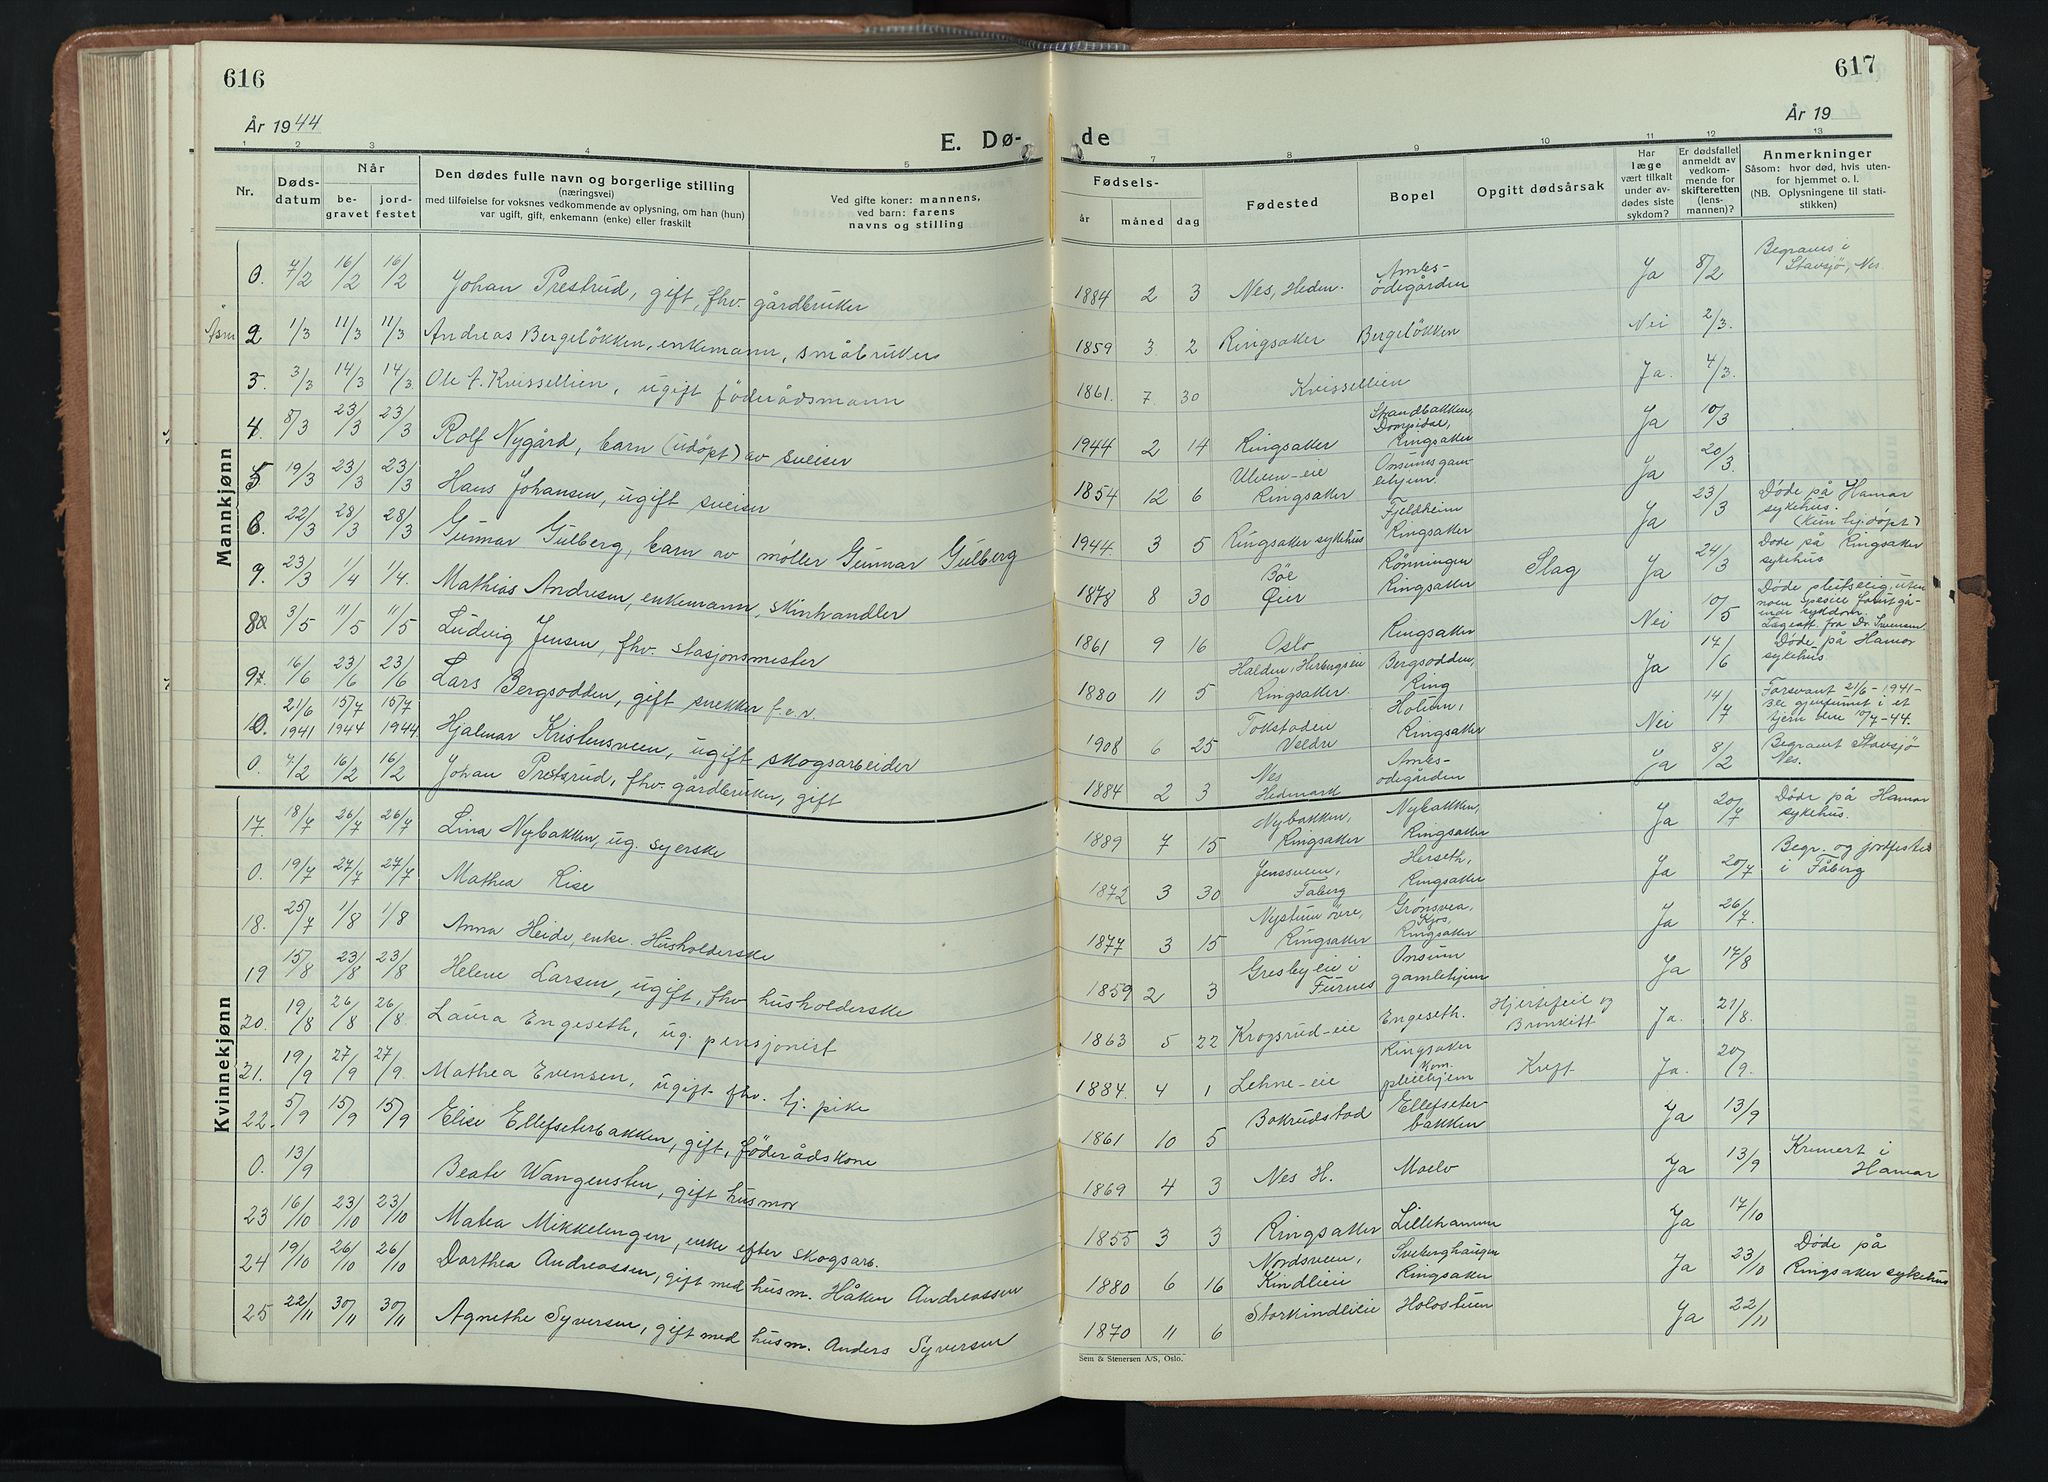 616
617
År 1944
År 19
E. Dø-
de
1 2 3 4 5 7 8 9 10 11 12 13
Nr.
Døds-
datum
Når
be-
gravet
jord-
festet
Den dødes fulle navn og borgerlige stilling
(næringsvei)
med tilføielse for voksnes vedkommende av oplysning, om han (hun)
var ugift, gift, enkemann (enke) eller fraskilt
Ved gifte koner: mannens,
ved barn: farens
navns og stilling
Fødsels-
år måned dag
Fødested
Bopel
Opgitt dødsårsak
Har
læge
vært tilkalt
under av-
dødes siste
sykdom?
Er dødsfallet
anmeldt av
vedkom-
mende for
skifteretten
(lens-
mannen)?
Anmerkninger
Såsom: hvor død, hvis uten-
for hjemmet o. l.
(NB. Oplysningene til stati-
stikken)
Mannkjønn
0. 7/2 16/2 16/2 Johan Prestrud, gift, fhv. gårdbruker 1884 2 3 Nes, Hedm. Ambs-ødegården Ja 8/2 Begraves i Stavsjø, Nes.
2 1/3 11/3 11/3 Andreas Bergeløkken, enkemann, småbruker 1859 3. 2 Ringsaker Bergeløkken Nei 2/3.
3. 3/3 14/3 14/3 Ole A. Kvissellien, ugift føderådsmann 1861. 7. 30 Kvissellien Ja. 4/3.
4. 8/3 23/3 23/3 Rolf Nygård, barn (udøpt) av sveiser 1944 2 14 Ringsaker Strandbakken, Ringsaker Ja 10/3
5 19/3 23/3 23/3 Hans Johansen, ugift sveiser 1854 12 6 Ulven-eie Ringsaker Onsums gamlehjem. Ja 20/3.
6. 22/3 28/3 28/3 Gunnar Gulberg, barn av møller Gunnar Gulberg 1944. 3 5 Ringsaker sykehus Fjeldheim Ringsaker Ja 23/3 Døde på Hamar sykehus. (Kun hj.døpt)
9. 23/3 1/4 1/4. Mathias Andresen, enkemann, skinhandler 1878 8 30 Bøe Øier Rønningen Ringsaker Slag Ja 24/3 Døde på Ringsaker sykehus
8 3/5 11/5 11/5 Ludvig Jensen, fhv. stasjonsmester 1861 9 16 Oslo Ringsaker Nei 10/5 Døde plutselig, uten noen spesiell forutgående sykdom. Lægeatt. fra Dr. Svensen.
9. 16/6 23/6 23/6 Lars Bergsodden, gift snekker f.e.v. 1880 11 5 Halden, Herbergseie Ringsaker. Bergsodden, Ring Ja 17/6 Døde på Hamar sykehus.
10. 21/6 1941 15/7 1944 15/7 1944. Hjalmar Kristensveen, ugift skogsarbeider 1908 6 25 Tokstaden Veldre Holum, Ringsaker Nei 14/7 Forsvant 21/6-1941- Ble gjenfunnet i et tjern 10/7-44.
0. 7/2 16/2 16/2 Johan Prestrud, fhv. gårdbruker, gift 1884 2 3 Nes Hedmark Ambs-ødegården Ja 8/2 Begravet Stavsjø Nes.
Kvinnekjønn
17. 18/7 26/7 26/7 Lina Nybakken, ug. syerske 1889 7 15 Nybakken, Ringsaker Nybakken, Ringsaker Ja 20/7 Døde på Hamar sykehus.
0. 19/7 27/7 27/7 Mathea Rise 1872 3 30 Jenssveen, Faberg Herseth, Ringsaker Ja 20/7 Begr. og jordfestes i Fåberg
18. 25/7 1/8 1/8 Anna Heide, enke. Husholderske 1877 3 15 Nystuen øvre, Ringsaker Grønsvea, Kjos, Ringsaker Ja 26/7.
19 15/8 23/8 23/8 Helene Larsen, ugift, fhv husholderske 1859 2 3 Gresbyeie i Furnes Onsum gamlehjem Ja 17/8
20. 19/8 26/8 26/8. Laura Engeseth, ug. pensjonist 1863 5 22 Krogsrud-eie Engeseth. Hjertefeil og Bronkitt Ja. 21/8.
21. 19/9 27/9 27/9. Mathea Evensen, ugift fhv. tj. pike 1884. 4 1 Lehne-eie Ringsaker kom. pleiehjem Kreft Ja. 20/9.
22. 5/9 15/9 15/9 Elise Ellefseterbakken, gift, føderådskone 1861 10 5 Bokrudstad Ellefseterbakken Ja 13/9
0. 13/9 Beate Wangensten, gift husmor 1869 4 3 Nes H. Moelv Ja 13/9 Kremert i Hamar
23 16/10 23/10 23/10 Matea Mikkelengen, enke efter skogsarb. 1855 3 3 Ringsaker Lillehammer Ja 17/10
24 19/10 26/10 26/10 Dorthea Andreassen, gift med husm. Håkon Andreassen 1880 6 16 Nordsveen, Kindlieie Sveberghaugen Ringsaker Ja 23/10 Døde på Ringsaker sykehus
25 22/11 30/11 30/11 Agnethe Syversen, gift med husm. Anders Syversen 1870 11 6 Storkindlieie Holostuen Ja 22/11
Sem & Stenersen A/S, Oslo.